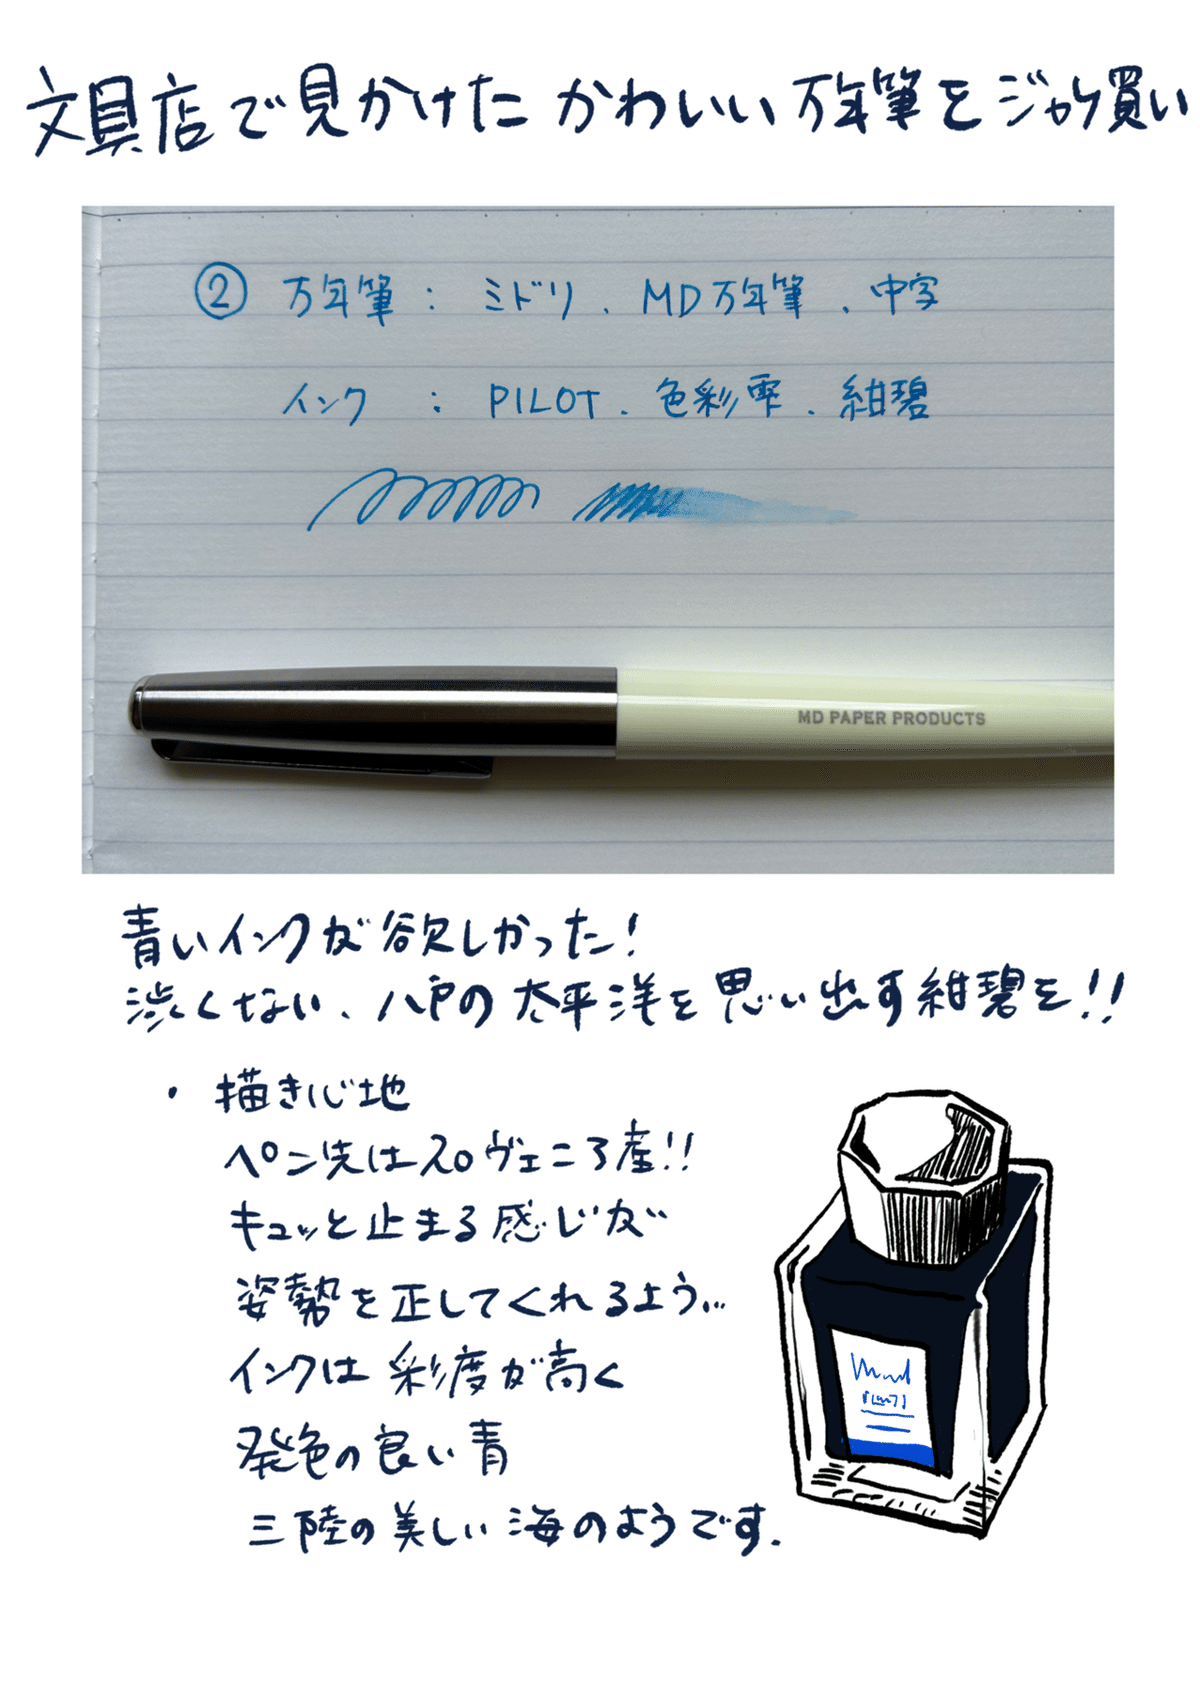 文具店で見かけたかわいい万年筆をジャケ買い
② 万年筆：ミドリ．MD万年筆．中字
インク ：PILOT．色彩雫．紺碧
MD PAPER PRODUCTS
青いインクが欲しかった！
渋くない、八戸の太平洋を思い出す紺碧を！！
・描き心地
ペン先はスロヴェニア産！！
キュッと止まる感じが
姿勢を正してくれるよう…
インクは彩度が高く
発色の良い青
三陸の美しい海のようです．